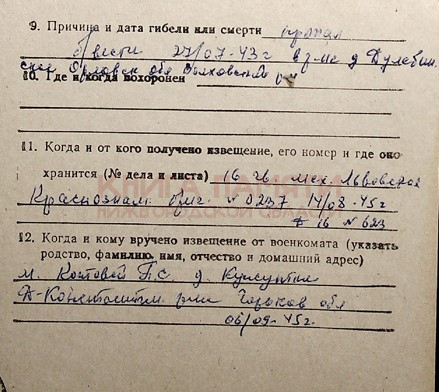 9. Причина и дата гибели или смерти пропал
б/вести 27/07-43 г в р-не д
Орловск обл Волховский
10. Где и когда похоронен
11. Когда и от кого получено извещение, его номер и где оно
хранится (№ дела и листа) 16 гв мех. Львовской
Краснознам. бриг. №0237 14/08-45 г
№ 623
КНИГА ПАМЯТИ
НИЖЕГОРОДСКОЙ ОБЛАСТИ
12. Когда и кому вручено извещение от военкомата (указать
родство, фамилию, имя, отчество и домашний адрес)
м. П.С. д.
Д-Константин. р-на Горьков обл
06/09-45 г.